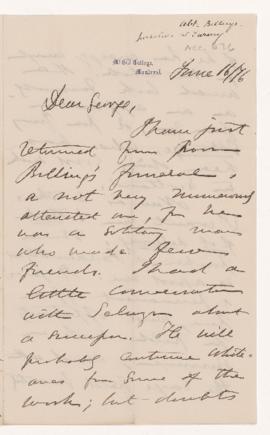 Abt. Billings.
ACC. 636
McGill College,
Montreal.
June 16/76
Dear George,
I have just
returned from poor
Billings's funeral,
a not very numerously
attended one, for he
was a solitary man
who made few
friends. I had a
little conversation
with Selwyn about
a successor. He will
probably continue White-
aves for some of the
work; but doubts